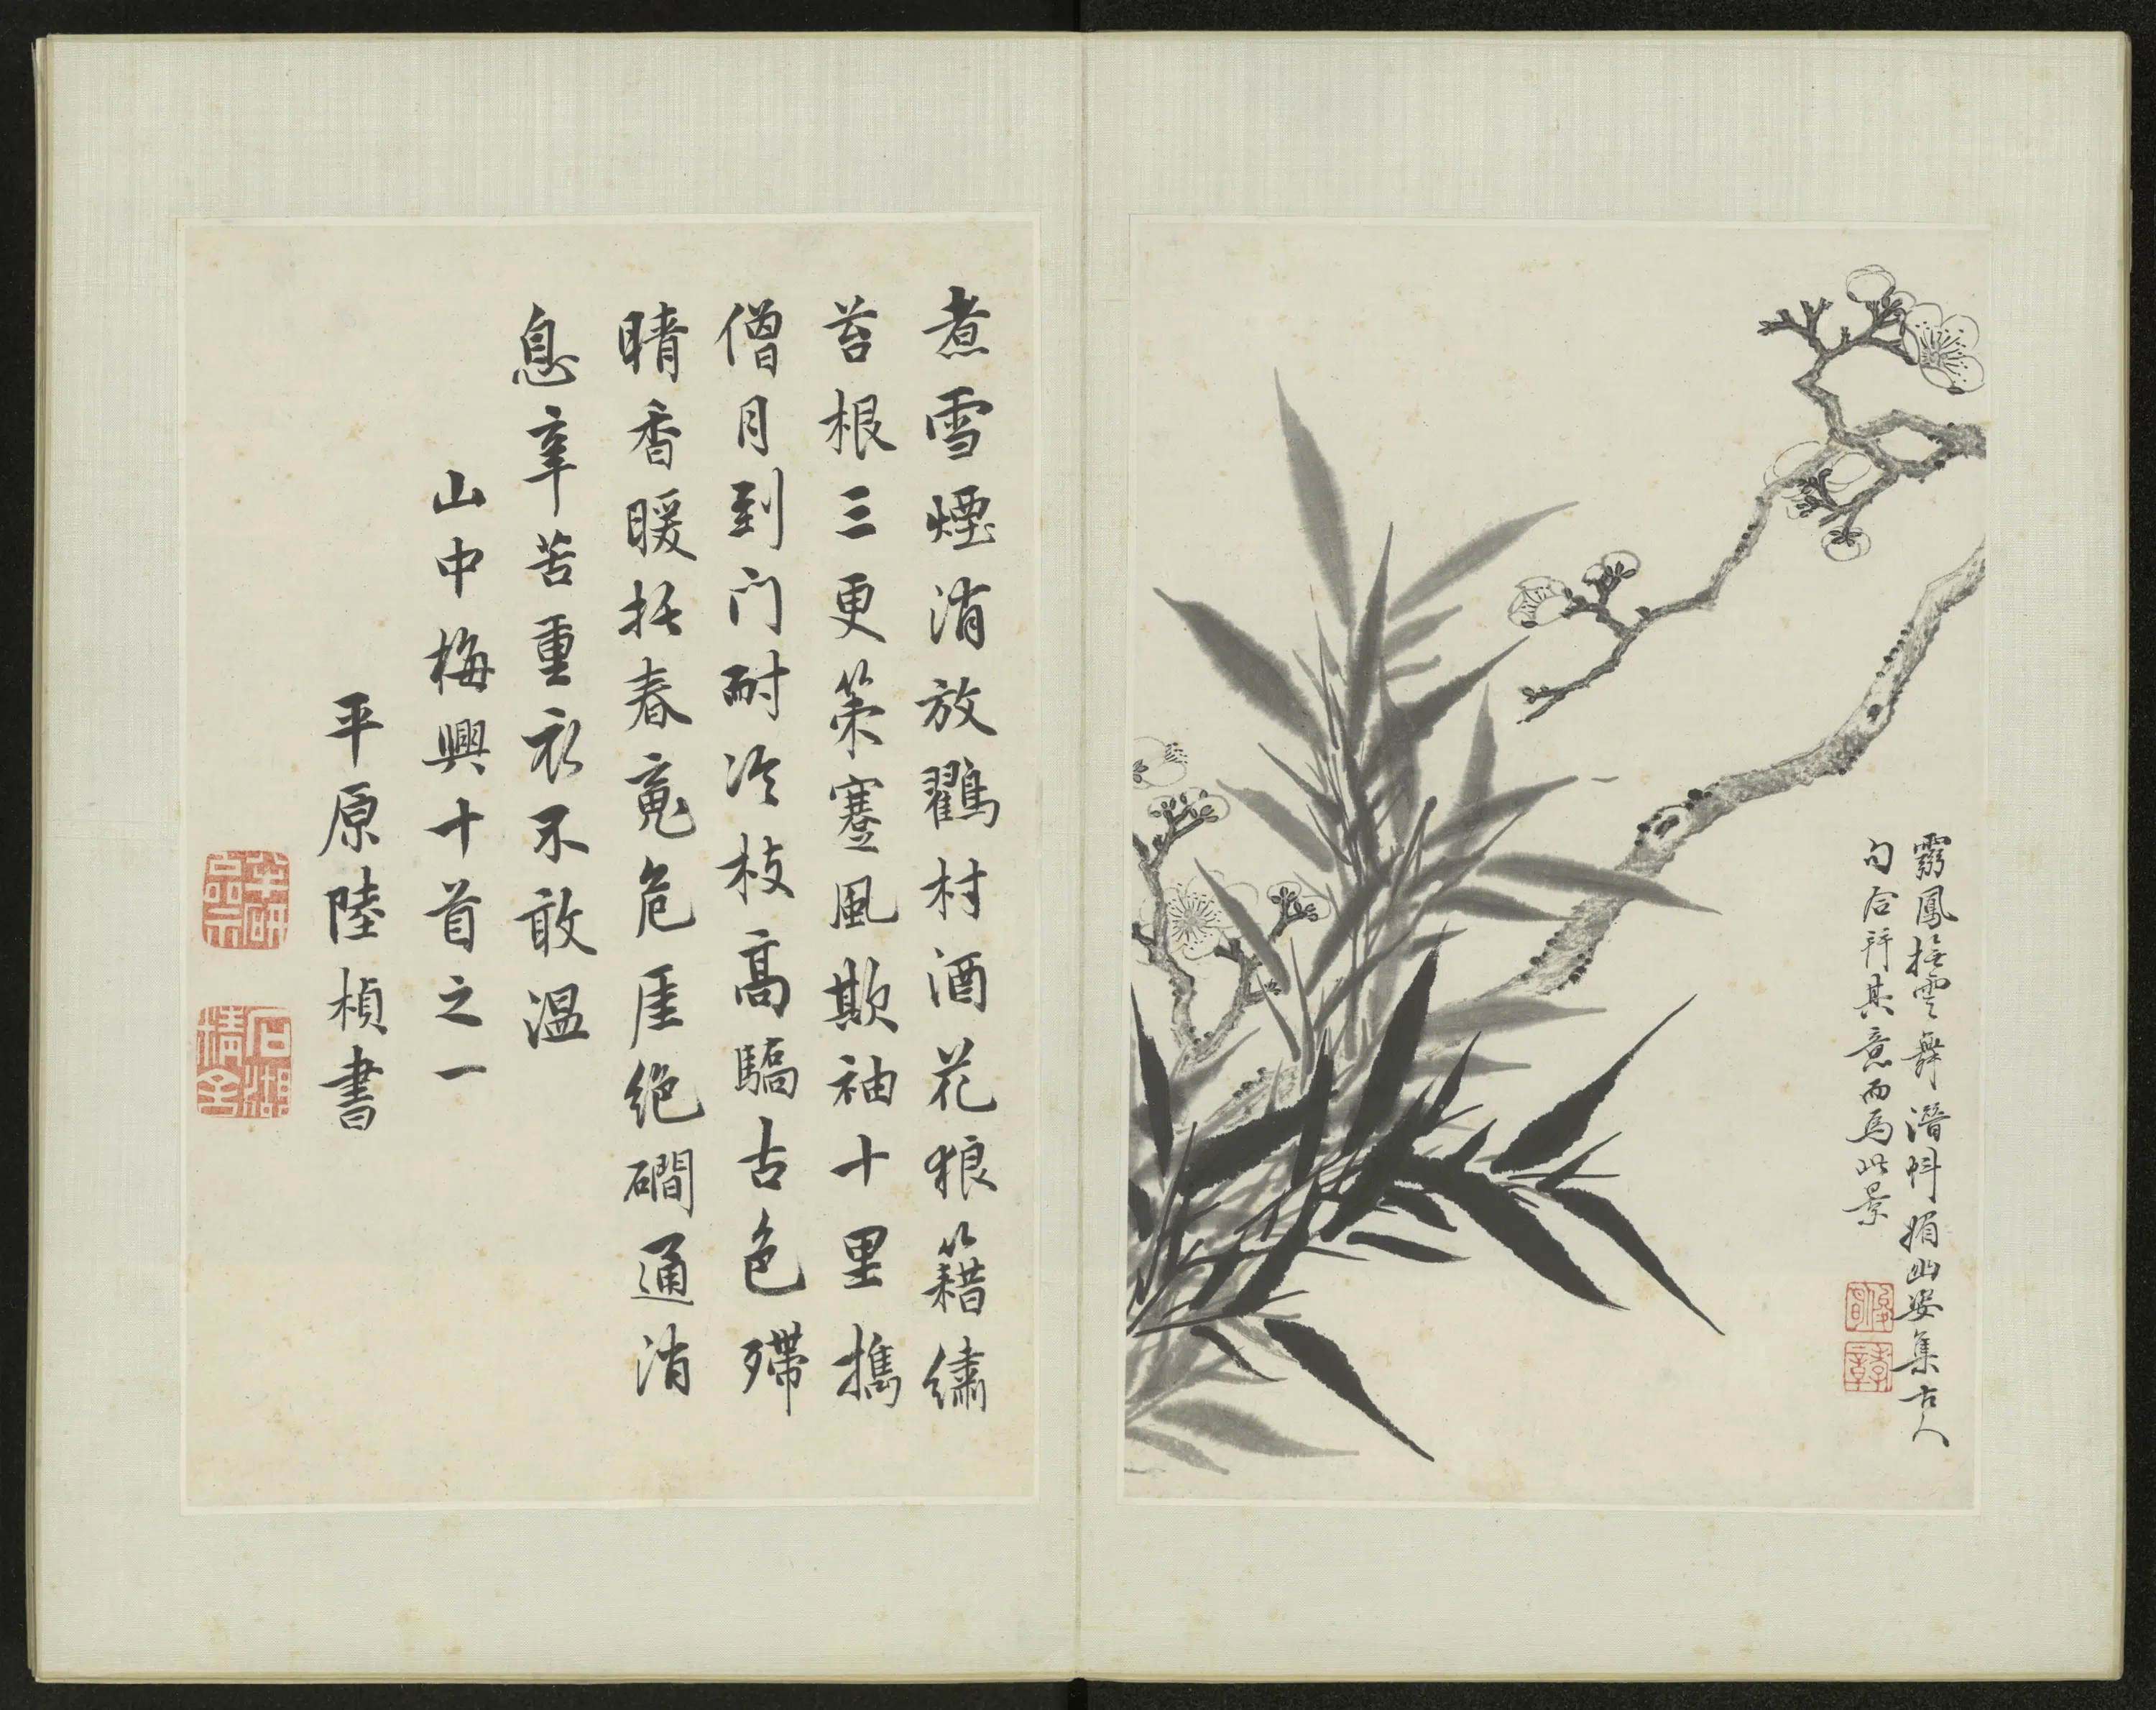 翳鳳接雲舞潛蚪媚幽姿集古人
句合並其意而為此景
煮雪煙消放鸛村酒花狼籍繡
苔根三更策蹇風欺袖十里攜
僧月到门耐冷枝高驕古色殢
晴香暖托春竟危厓絕磵通消
息辛苦重衣不敢溫
山中梅興十首之一
平原陸楨書